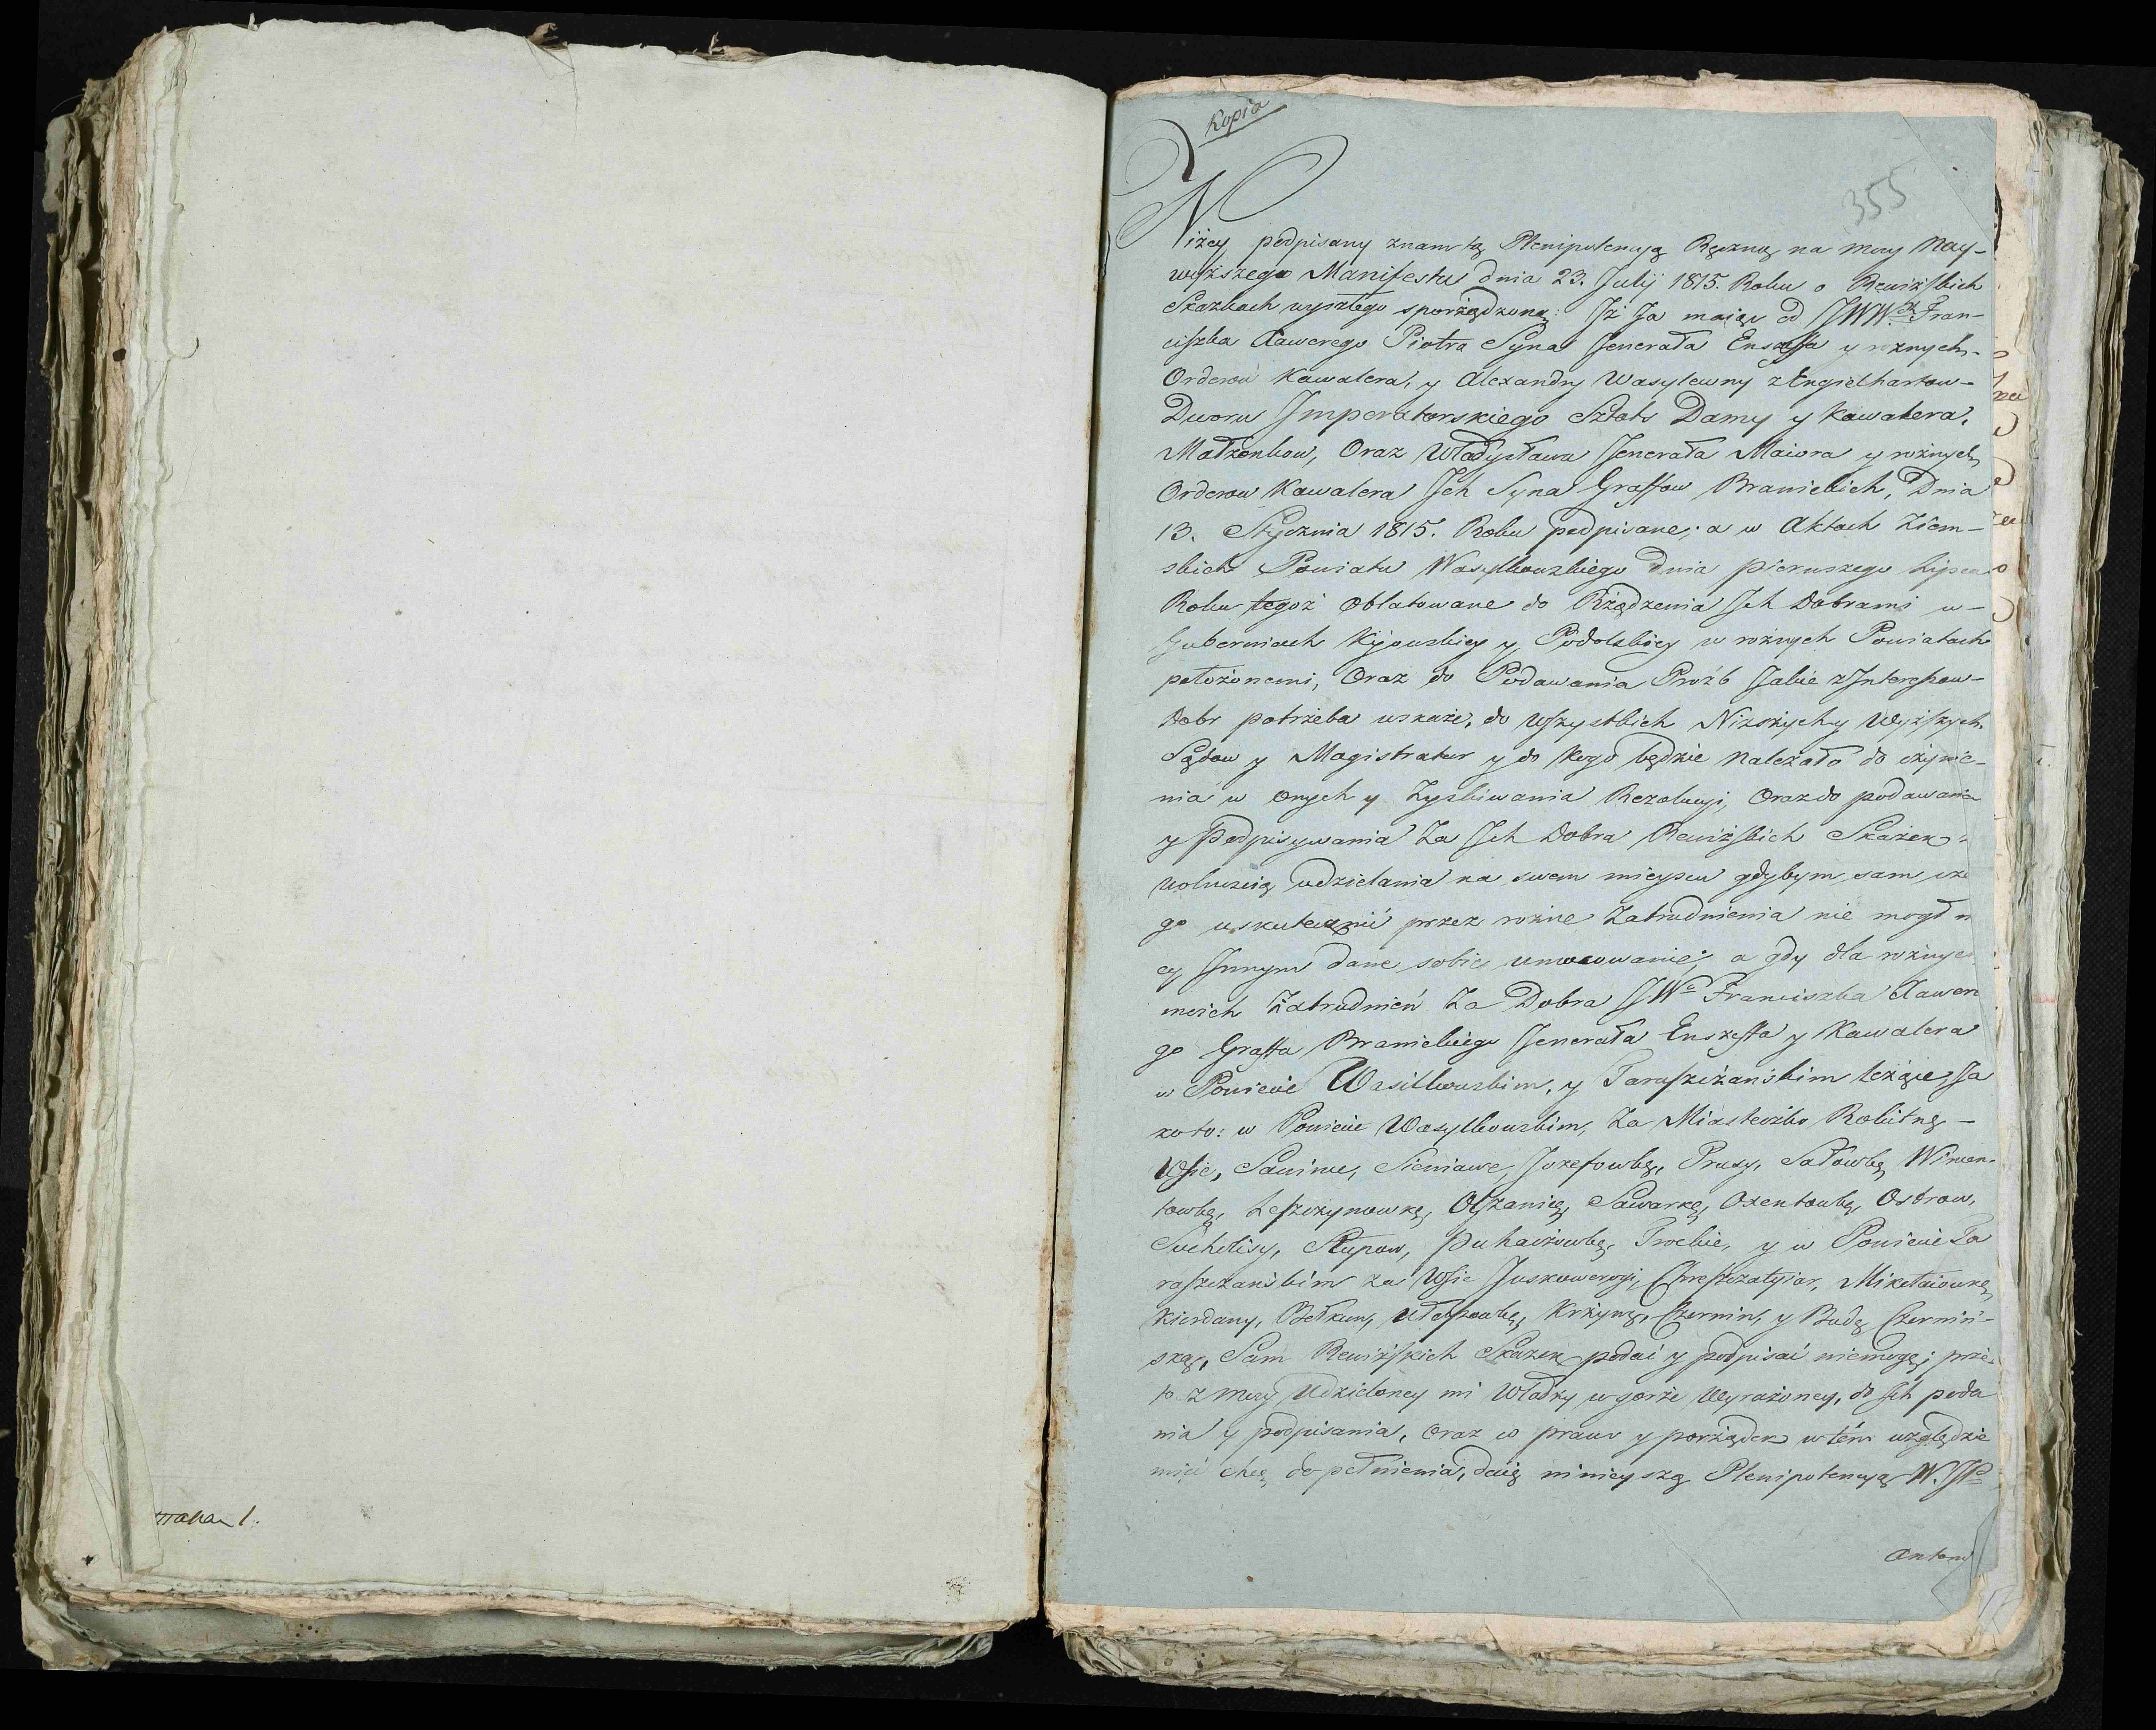 Kopia
355
Niżey podpisany znam tą Plenipotencyą Ręczną na mocy Nay-
wyższego Manifestu dnia 23. Julij 1815. Roku o Rewizskich
Skazkach wyszłego sporządzoną: Iż Ja maiąc od JWW. Fran-
ciszka Xawerego Piotra Syna Jenerała Enszeffa y rożnych
Orderow Kawalera, y Alexandry Wasylewny z Engielhartow-
Dworu Imperatorskiego Sztats Damy y Kawalera,
Małżonkow, Oraz Władysława Jenerała Maiora y rożnych
Orderow Kawalera Ich Syna Graffow Branickich, Dnia
13. Stycznia 1815. Roku podpisane; a w Aktach Ziem-
skich Powiatu Wasylkowskiego dnia pierwszego Lipca
Roku tegoż oblatowane do Rządzenia Ich Dobrami w-
Guberniach Kijowskiey y Podolskiey w rożnych Powiatach
położonemi, Oraz do Podawania Proźb Jakie z Interessow-
Dobr potrzeba wskaże, do wszystkich Niższych y Wyższych
Sądow y Magistratur y do kogo będzie należało do czynie-
nia w onych y Zyskiwania Rezolucyi, Oraz do podawania
y Podpisywania Za Ich Dobra Rewizskich Skazek
wolnością udzielania na swem mieyscu gdybym sam cze
go uskutecznić przez rożne Zatrudnienia nie mogł m
cy Innym dane sobie umocowanie; a gdy dla rożnyc
moich Zatrudnień Za Dobra JW Franciszka Xawere
go Graffa Branickiego Jenerała Enszeffa y Kawalera
w Powiecie Wasilkowskim, y Taraszczańskim leżące, Ja
koto: w Powiecie Wasylkowskim, Za Miasteczko Rokitnę-
Wsie, Sawińce, Sieniawe, Jozefowkę, Prusy, Sałowkę, Wincen-
towkę, Leszczynowkę, Olszanicę, Sawarkę, Oxentowkę, Ostrow,
Sucholisy, Puhaczowkę, y w Powiecie Ta
raszczańskim za Wsie Juskowerogi, Chreszczatyiar, Mikołaiowkę
Kierdany, Bełkun, Krzywę, Czermin, y Budę Czermiń-
ską, Sam Rewizskich Skazek podać y podpisać niemogę; prze
to z mocy Udzieloney mi Władzy w gorze Wyrażoney, do Ich poda
nia y podpisania, Oraz co prawo y porządek w tém względzie
mieć chcą do pełnienia, daię ninieyszą Plenipotencyą W. JP
Antoni
1.